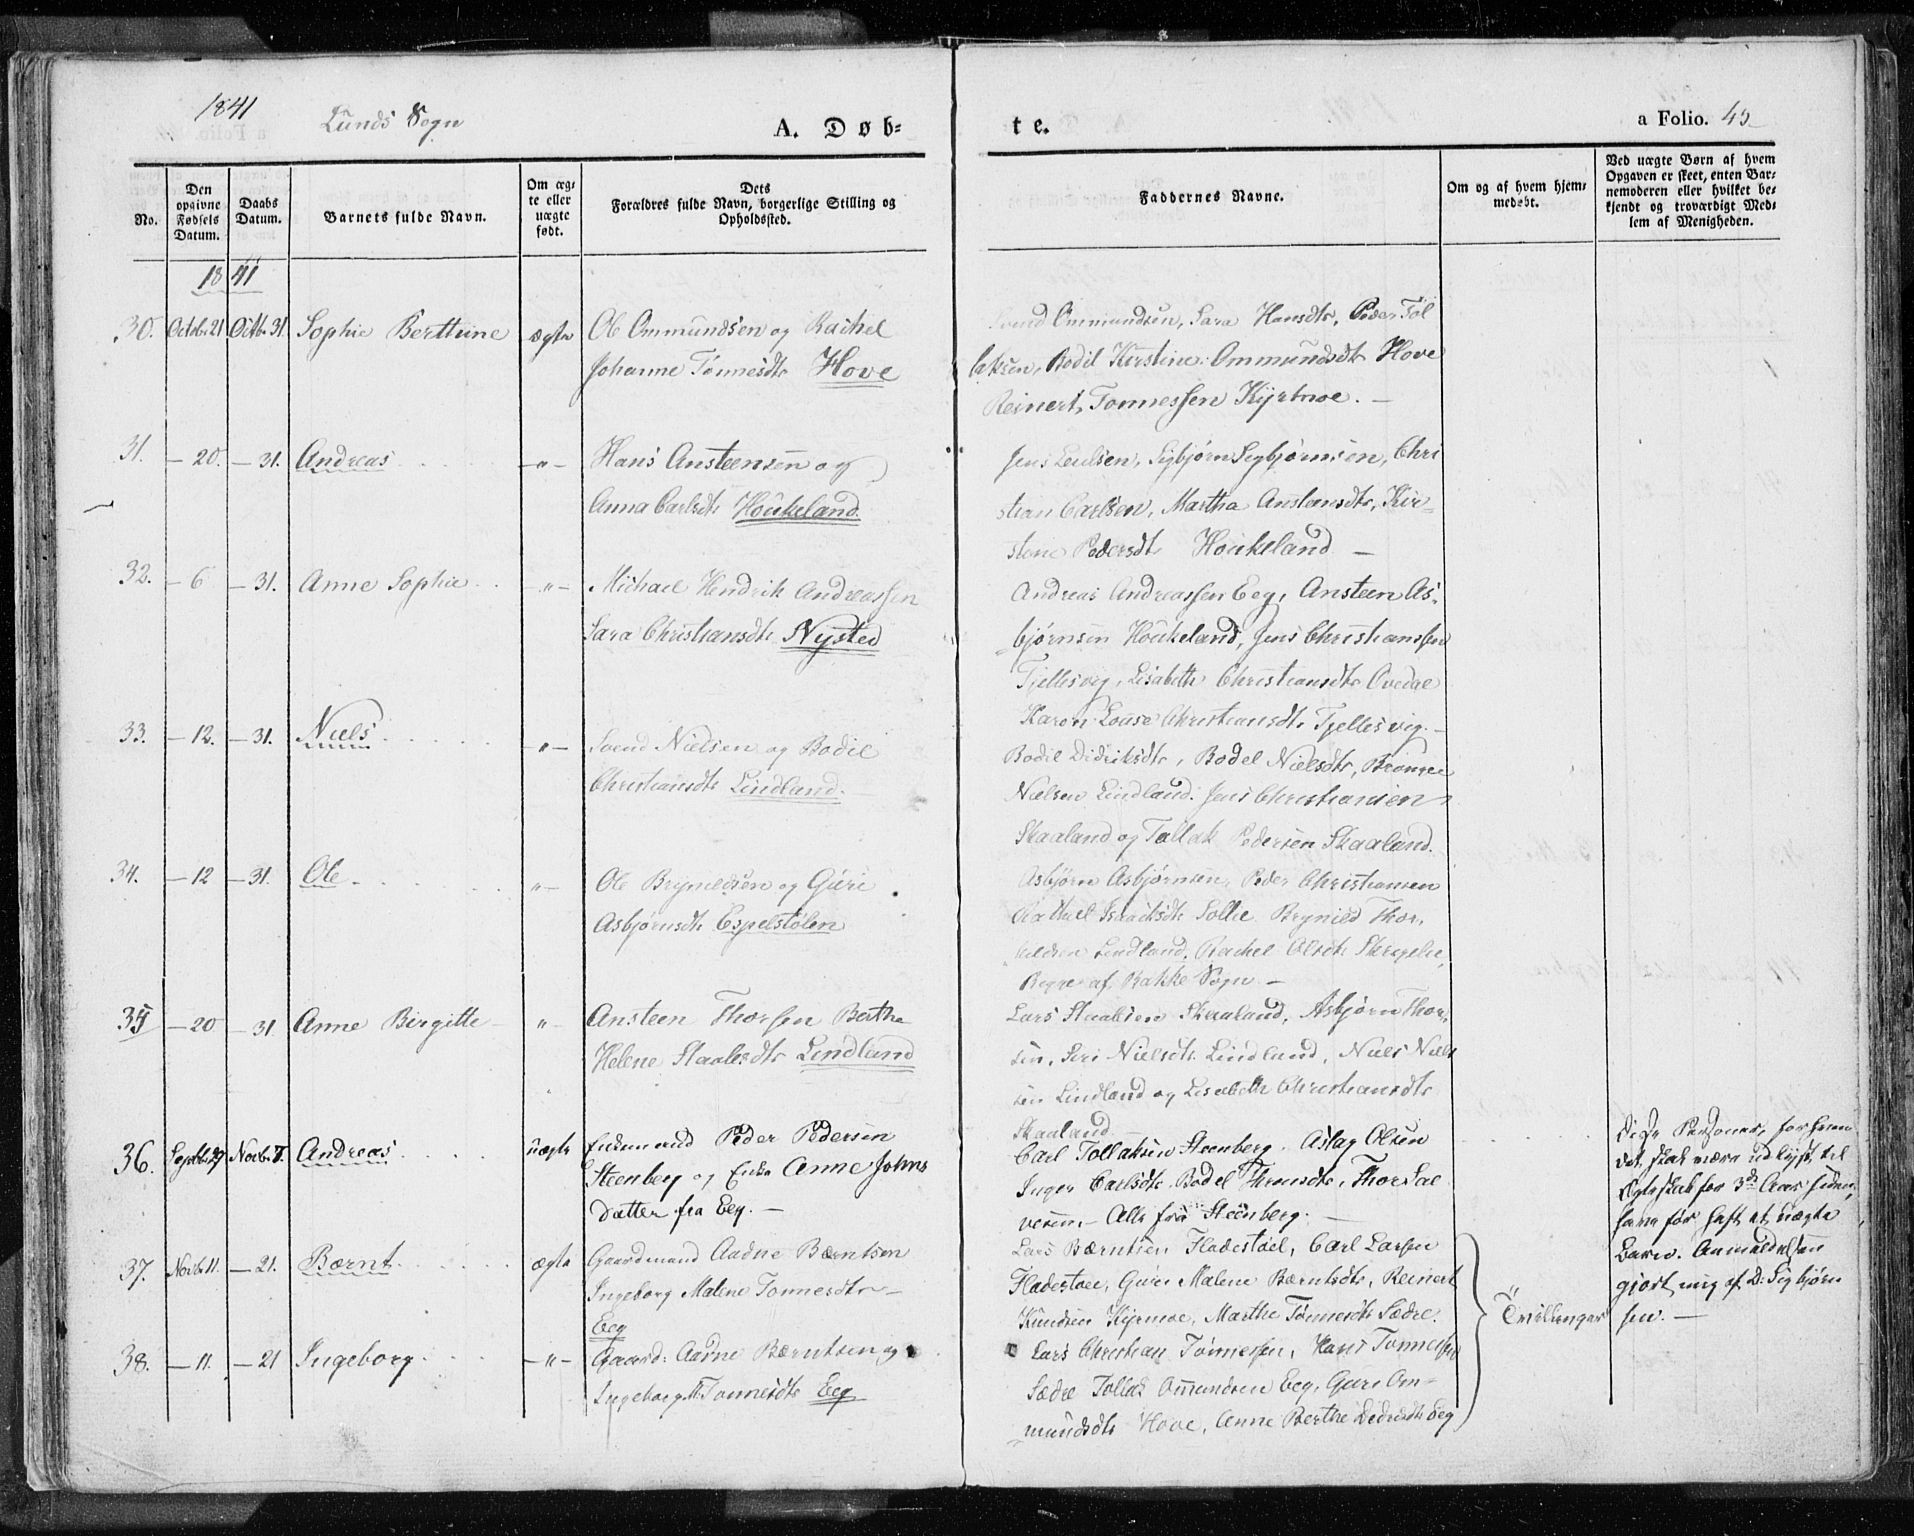 1841
Lunds Sogn
A. Døb-
te.
a Folio. 45
No.
Den opgivne Fødsels Datum.
Daabs Datum.
Barnets fulde Navn.
Om ægte eller uægte født.
Dets Forældres fulde Navn, borgerlige Stilling og Opholdssted.
Faddernes Navne.
Om og af hvem hjemmedøbt.
Ved uægte Børn af hvem Opgaven er skeet, enten Barnemoderen eller hvilket bekjendt og troværdigt Medlem af Menigheden.
1841
30. Octob. 21 Octb. 31. Sophie Berttine ægte Ole Ommundsen og Rachel
Johanne Tønnesdtr Hove
Svend Ommundsen, Sara Hansdtr, Peder Tol
laksen, Bodil Kirstine Ommundsdtr Hove
Reinert Tonnessen Kyrtmoe. —
31. — 20. — 31. Andreas —"— Hans Ansteensen og
Anna Carlsdtr Houkeland.
Jens Sigbjørn Sigbjørnsen, Chri
stian Carlsen, Martha Anstensdtr, Kir-
stine Pedersdt Houkeland —
32. — 6 — 31. Anne Sophie —"— Michael Hendrik Andreassen
Sara Christiansdtr Nysted
Andreas Andreassen Eeg, Ansteen As-
bjørnsen Houkeland, Jens Christianssen
Tjellesvig, Lisabeth Christiansdtr Ovedal
Karen Louise Christiansdtr Tjellesvig. —
33. — 12. — 31. Niels —"— Svend Nielsen og Bodil
Christiansdtr Lindland. —
Bodil Didriksdtr, Bodel Nielsdtr,
Nielsen Lindland. Jens Christiansen
Skaaland og Tollak Pedersen Skaaland.
34. — 12 — 31. Ole "— Ole Brynildsen og Guri
Asbjørnsdtr Espelstølen
Asbjørn Asbjørnsen, Peder Christiansen
Isaaksdtr Sollie. Brynild Thor-
Lindland, Rachel Olsdtr
af Bakke Sogn —
35 — 20 — 31 Anne Birgitte "— Ansteen Thorsen Berthe
Helene Staalesdtr Lindland
Lars Staalesen Skaaland, Asbjørn Thor-
sen, Siri Nielsdtr Lindland, Niels Niel
sen Lindland og Lisabeth Christiansdtr
Skaaland
36. Septbr. 27 Novb. 7. Andreas uægte Enkemand Peder Pedersen
Steenberg og Enke Anne Johns
datter fra Eeg. —
Carl Tollaksen Steenberg. Aslag Olsen
Inger Carlsdtr. Bodel Thorsdtr, Thor Sal
vesen. — Alle fra Steenberg. —
Disse Personer, forhen
det, skal være udlyst til
Ægteskab for 3de Aar siden,
have før haft et uægte
Barn. Anmeldelsen
gjort mig af D: Sigbjørn
sen. —
37. Novb. 11. — 21. Bærnt ægte Gaardmand Aadne Bærntsen
Ingeborg Malene Tonnesdtr —
Eeg
Lars Bærntsen Fladestøel, Carl Larsen
Fladestøel, Guri Malene Bærntsdtr, Reinert
Knudsen Kyrmoe, Marthe Tønnesdtr Sædre.
Tvillinger
38. — 11. — 21 Ingeborg —"— Gaard: Aadne Bærntsen og
Ingeborg M. Tonnesdtr Eeg
Lars Christian Tønnessen, Hans Tønnessen
Sædre Tollak Omundsen Eeg, Guri Om-
mundsdtr Hove, Anne Berthe Didriksdtr Eeg